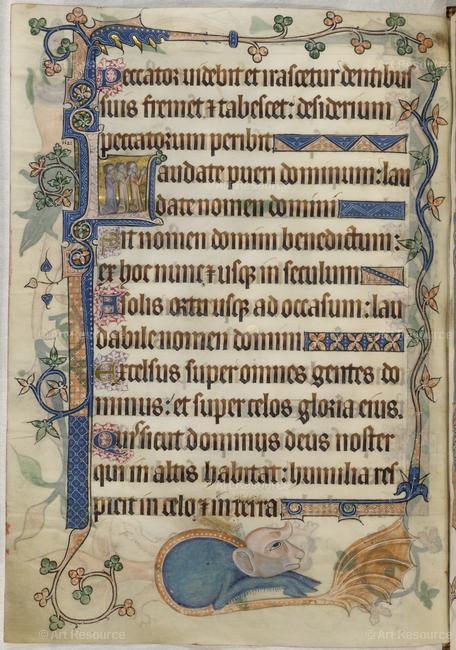 Peccator uidebit et irascetur dentibus
suis fremet ⁊ tabescet: desiderium
peccatorum peribit.
Laudate pueri dominum: lau
date nomen domini
Sit nomen domini benedictum:
ex hoc nunc ⁊ usq; in seculum
A solis ortu usq; ad occasum: lau
dabile nomen domini
Excelsus super omnes gentes do
minus: et super celos gloria eius.
Quis sicut dominus deus noster
qui in altis habitat: humilia res
picit in celo ⁊ in terra
© Art Resource
© Art Resource